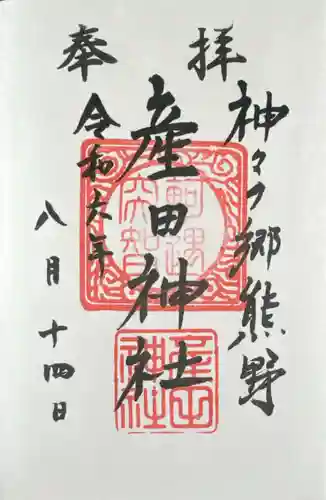 奉拝
神々の郷熊野
産田神社
令和六年
八月十四日
産田
神社